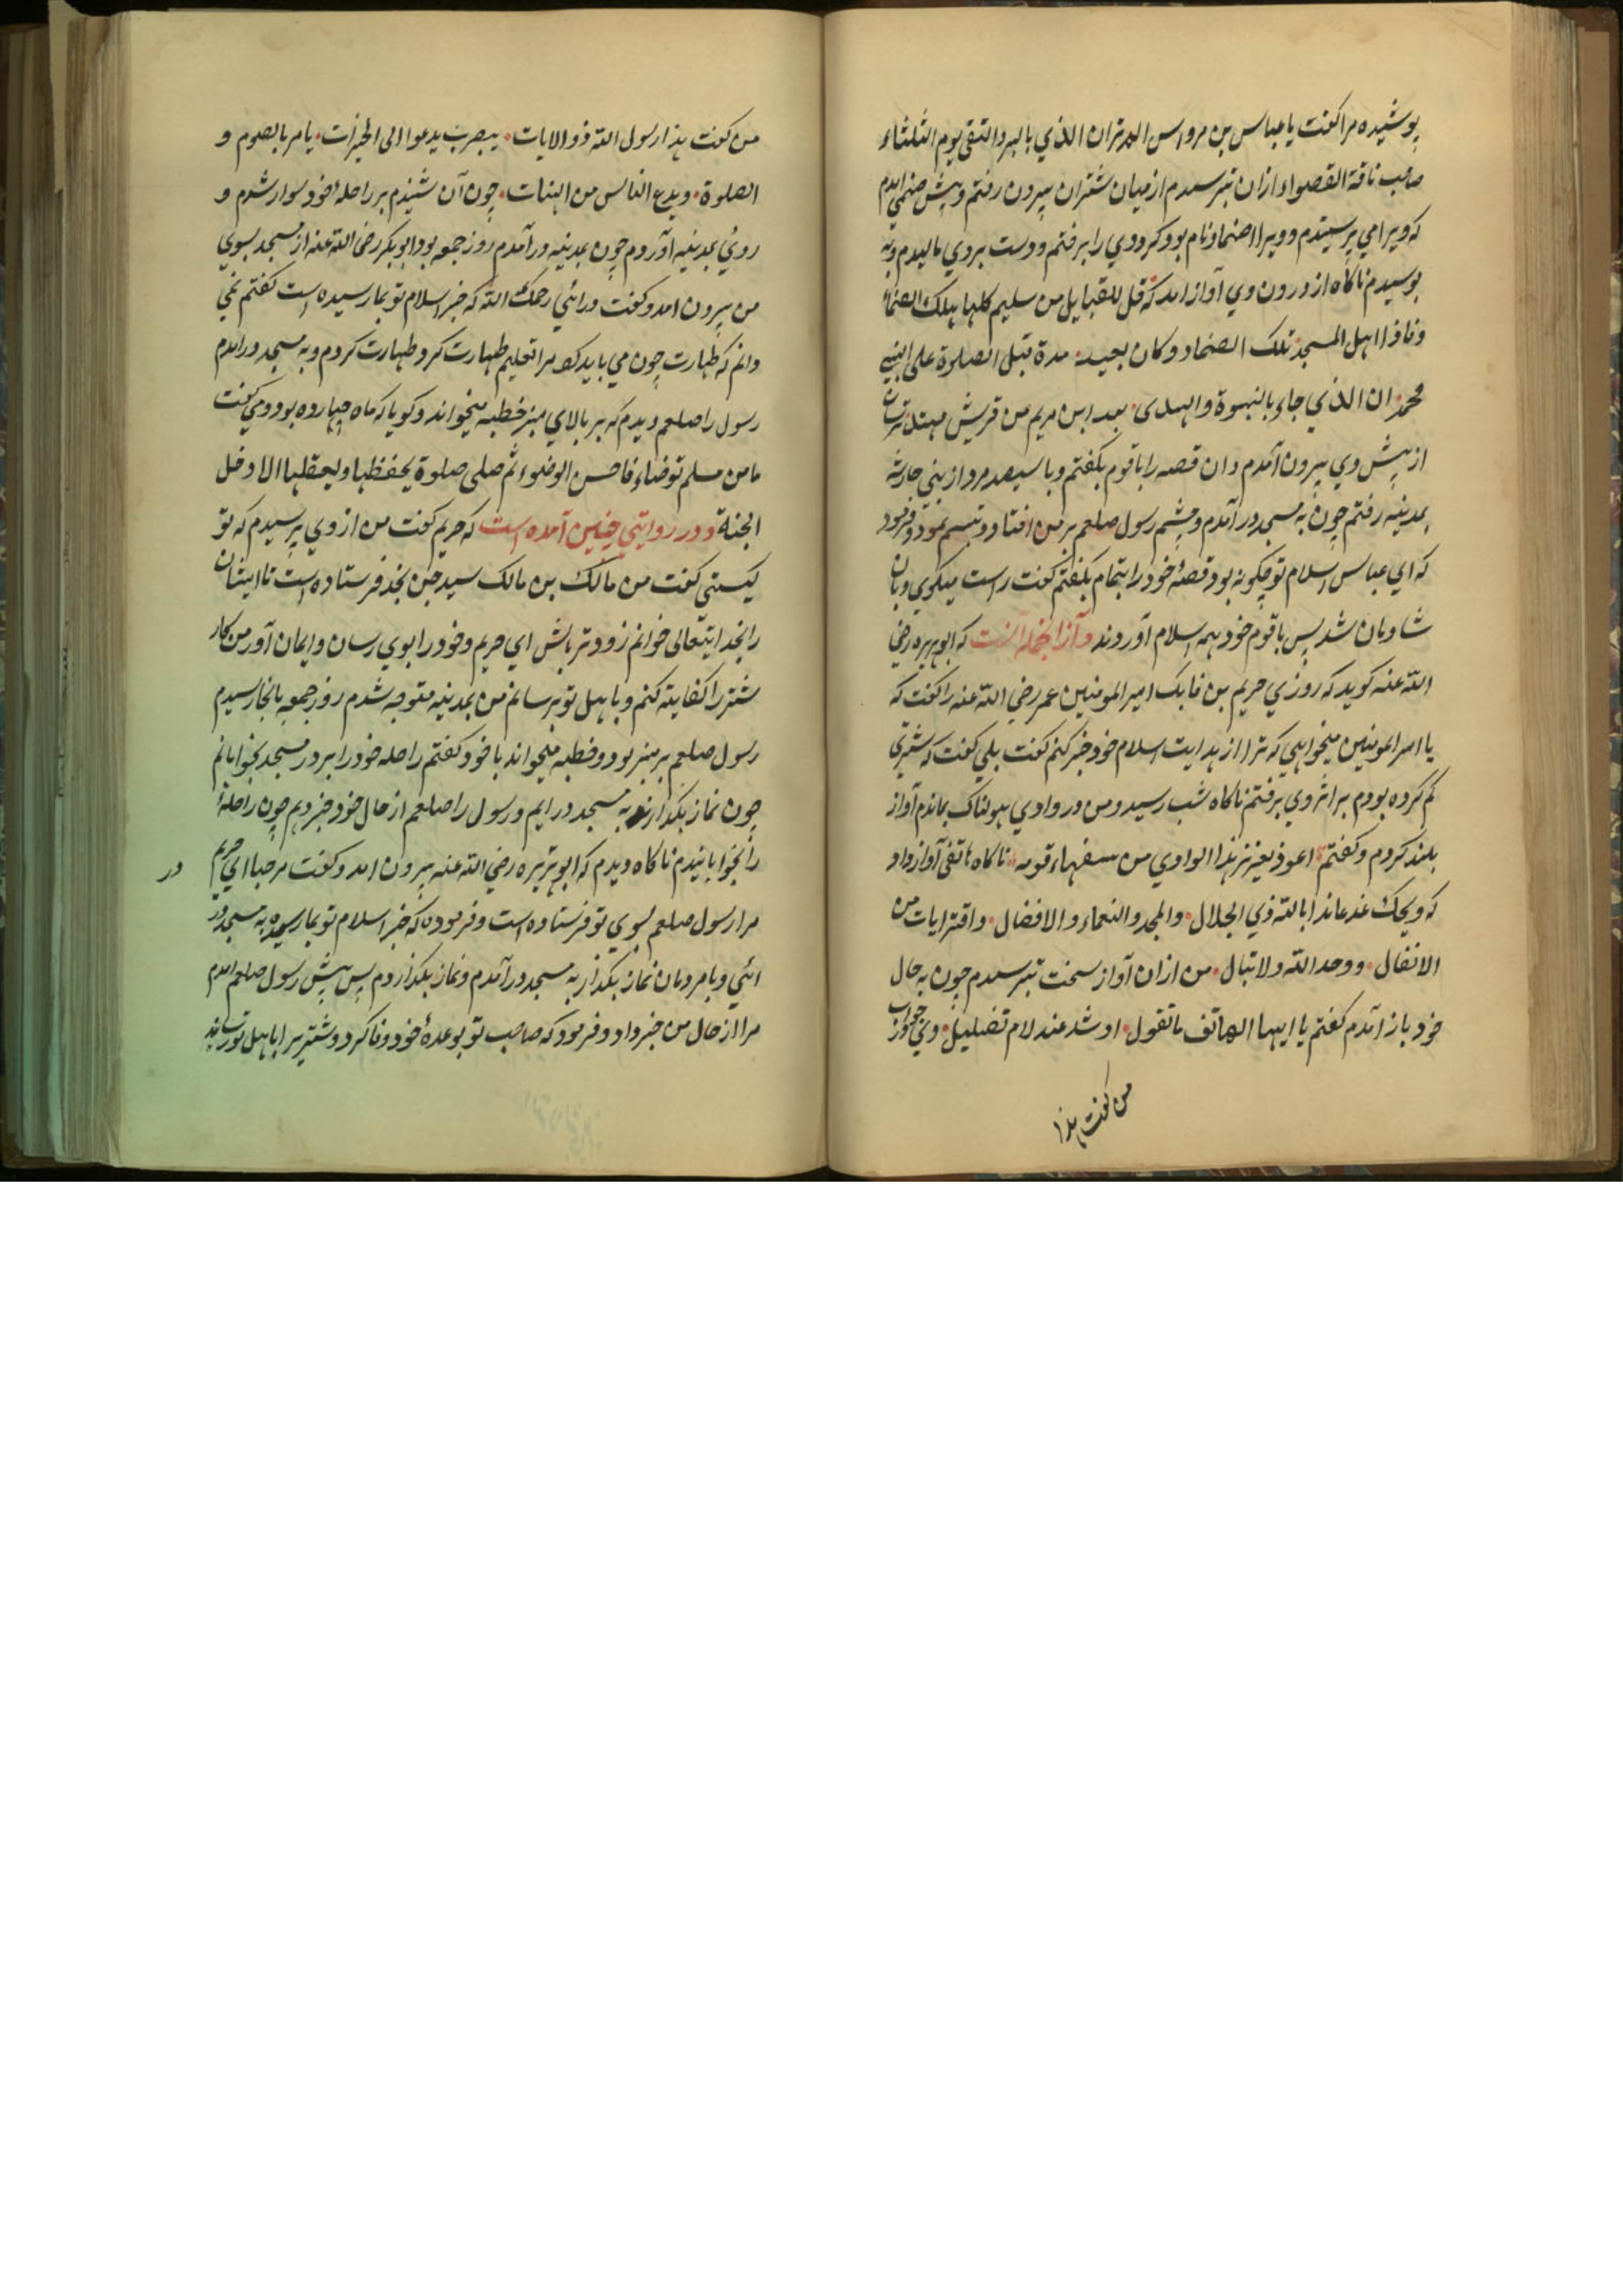 پوشیده مرا کفت یا عباس بن مرداس الم تران الذي بالبر والتقی یوم الثلثاء
صاحب ناقة القصواء ازان بترسیدم از میان شتران بیرون رفتم و پیش صنمي امدم
که ویرا مي پرستیدم و ویرا ضماد نام بود کرد وي را برفتم و دست بر وي مالیدم و به
بوسیدم ناکاه از درون وي آواز امد که قل للقبایل من سلیم کلها هلك الضماد
وفاز اهل المسجد تلک الضماد وکان یعبد مدة قبل الصلوة علی النبي
محمد ان الذي جاء بالنبوة والهدی بعد ابن مریم من قریش مهتد ترسان
از پیش وي بیرون آمدم وان قصه را باقوم بکفتم وبا سیصد مرد از بني حارثه
بمدینه رفتم چون به مسجد در آمدم وچشم رسول صلعم بر من افتاد وتبسم نمود وفرمود
که اي عباس اسلام تو چکونه بود قصهٔ خود را بتمام بکفتم کفت راست میکوي وبان
شادمان شد پس باقوم خود همه اسلام آوردند وآز انجمله انست که ابوهریره رضي
الله عنه کوید که روزي خریم بن فاتك امیر المومنین عمر رضي الله عنه را کفت که
یا امیر المومنین میخواهي که ترا از بدایت اسلام خود خبر کنم کفت بلي کفت که شتري
کم کرده بودم بر اثر وي برفتم ناکاه شب رسید ومن در وادي هولناک بماندم آواز
بلند کردم وکفتم اعوذ بعزیز هذا الوادي من سفهاء قومه ناکاه هاتفی آواز داد
که ویحك عذ عائذا بالله ذي الجلال والمجد والنعماء والافضال واقترا یات من
الانفال ووحد الله ولا تبال من ازان آواز سخت بترسیدم چون به حال
خود باز آمدم کفتم یا ایها الهاتف ما تقول ارشد عندك ام تضلیل وي جواب
من کفت هذا
من کفت هذا رسول الله ذو الایات بیثرب یدعوا الی الخیرات یامر بالصوم و
الصلوة ویدع الناس من الهنات چون آن شنیدم بر راحلهٔ خود سوار شدم و
روئ بمدینه آوردم چون بمدینه در آمدم روز جمعه بود ابوبکر رضي الله عنه از مسجد بسوي
من بیرون امد وکفت درائي رحمك الله که خبر اسلام تو بما رسیده است کفتم نمي
دانم که طهارت چون مي باید کرد مرا تعلیم طهارت کرد وطهارت کردم وبه مسجد در امدم
رسول را صلعم دیدم که بر بالاي منبر خطبه میخواند وکویا که ماه چهارده بود ومي کفت
ما من مسلم توضاء فاحسن الوضوء ثم صلی صلوة یحفظها ویعقلها الا دخل
الجنة ودر روایتي چنین آمده است که خریم کفت من از وي پرسیدم که تو
کیستي کفت من مالك بن مالك سید جن نجد فرستاده است تا ایشان
را بخدایتعالی خوانم زودتر باش اي خریم وخود را بوي رسان وایمان آور من کار
شتر را کفایة کنم وباهل تو برسانم من بمدینه متوجه شدم روز جمعه بانجا رسیدم
رسول صلعم بر منبر بود وخطبه میخواند با خود کفتم راحله خود را بر در مسجد بخوابانم
چون نماز بکذارند به مسجد در ایم ورسول را صلعم از حال خود خبر دهم چون راحلهٔ
را بخوابانیدم ناکاه دیدم که ابوهریره رضي الله عنه بیرون امد وکفت مرحبا اي خریم
در
مرا رسول صلعم بسوي تو فرستاده است وفرموده که خبر اسلام تو بما رسیده به مسجد در
ائي وبا مردمان نماز بکذار به مسجد در آمدم ونماز بکذاردم پس پیش رسول صلعم امدم
مرا از حال من خبر داد وفرمود که صاحب تو بوعدهٔ خود وفا کرد وشتر را باهل تو رسانید